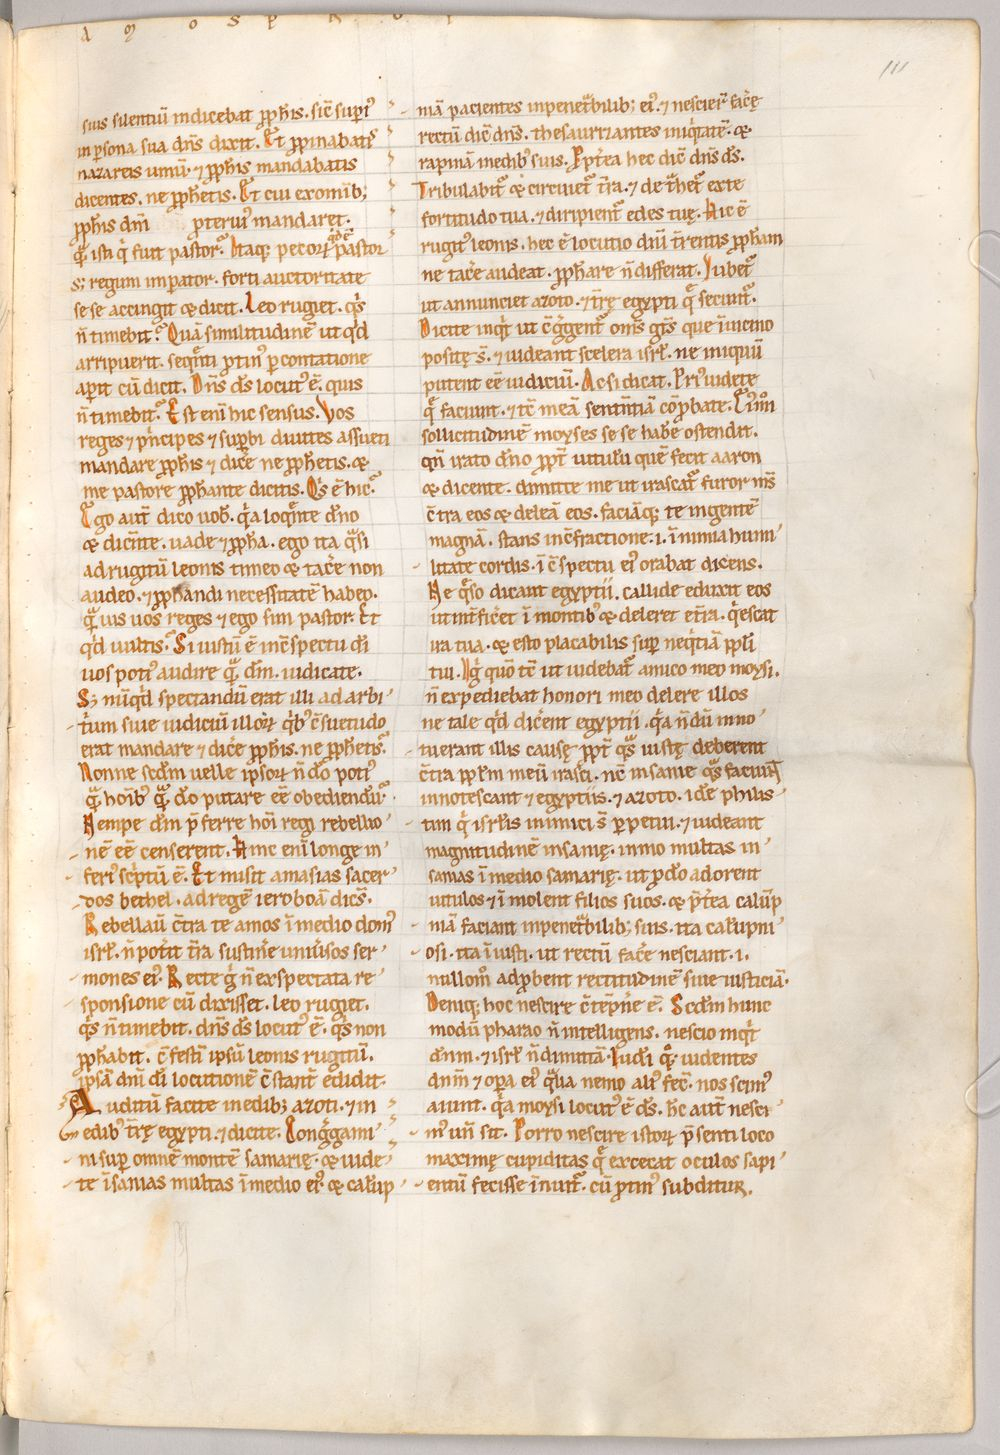 A M O S P R O P
111
sius silentiū indicebat ꝓph̄is. sic̄ supi᷒
in ꝑsona sua dn̄s dixit. Et ꝓpinabatis
nazareis uinū. ⁊ ꝓph̄is mandabatis
dicentes. ne ꝓph̄etis. Et cui ex omīb;
ꝓph̄is dn̄i pteruiꝰ mandaret.
isti q̇ fuit pastor. Itaq; pecorꝝ pastor
s; regum imꝑator. forti auctoritate
se se accingit ⁊ dicit. Leo rugiet. q̇s
n̄ timebit. Quā similitudinē ut qd̓
arripuerit. seqn̄ti ꝓtinꝰ ꝑcontatione
aꝑit cū dicit. Dn̄s ds̄ locutꝰ ē. quis
n̄ timebit. Est eni hic sensus. Vos
reges ⁊ pⁱncipes ⁊ suꝑbi diuites assueti
mandare ꝓph̄is ⁊ dicēˀ ne ꝓph̄etis. ⁊
me pastore ꝓph̄ante dicitis. Qⁱs ē hic.
Ego aut̄ dico uob̄. qⁱa loqn̄te dn̄o
⁊ dicn̄te. uade ⁊ ꝓph̄a. ego ita qᵃsi
ad rugitū leonis timeo ⁊ tacēˀ non
audeo. ⁊ ꝓph̄andi necessitatē habeo.
qᵃuis uos reges ⁊ ego sim pastor. Et
qⁱd uultis. Si iustū ē in c̄spectu dī
uos potiꝰ audire qᵃ dm̄. iudicate.
S; nūqⁱd spectandū erat illi ad arbi
trium siue iudiciū illorꝝ qⁱbꝰ c̄suetudo
erat mandare ⁊ dicēˀ ꝓph̄is. ne ꝓph̄etis.
Nonne scd̄m uelle ipsorꝝ n̄ dō potiꝰ
qᵃ hoībꝰ qᵃ dō putare eē obediendū.
Nempe dm̄ p̄ferre hoī regi rebellio
nē eē censerent. Hinc eni longe in
feriꝰ scⁱptū ē. Et misit amasias sacer
dos bethel. ad regē ieroboā dicēs.
Rebellauᷓ c̄tra te amos ī medio domꝰ
isrl̄. n̄ potⁱt t̄ra sustinēˀ uniūsos ser
mones eiꝰ. Recte gⁱ n̄ exspectata re
sponsione cū dixisset. leo rugiet.
qⁱs n̄ timebit. dn̄s ds̄ locutꝰ ē. qⁱs non
ꝓph̄abit. c̄festī ipsū leonis rugitū.
ipsā dn̄i dī locutionē c̄stant̄ edidit.
Auditū facite in edib; azoti. ⁊ in
edibꝰ t̄rę egypti. ⁊ dicite. Congᵉgami
ni suꝑ omnē montē samarię. ⁊ uide
te īsanias multas ī medio eiꝰ. ⁊ calūp
niā pacientes in penetᵃlibꝰ; eiꝰ. ⁊ nescierꞇ̄ facēˀ
rectū dic̄ dn̄s. thesaurizantes iniqⁱtatē. ⁊
rapinā in edibꝰ suis. Ꝓpt̄ea hec dic̄ dn̄s ds̄.
Tribulabit̄ ⁊ circuiet̄ t̄ra. ⁊ detᵃhet̄ ex te
fortitudo tua. ⁊ diripient̄ edes tuę. Hic ē
rugitꝰ leonis. hec ē locutio dn̄i t̄rentis ꝓph̄am
ne tacēˀ audeat. ꝓph̄are n̄ differat. Iubet̄
ut annunciet azoto. ⁊ t̄rę egypti qᵉ secunt̄.
Dicite inqⁱt ut c̄gᵉgent̄ om̄s gn̄s que ī uicino
positę s̄. ⁊ uideant scelera isrl̄. ne iniquū
putent eē iudiciū. Ac si dicat. Pⁱꝰ uidete
qᵉ faciunt. ⁊ tc̄ meā sentn̄tiā cōprobate.
sollicitudinē moyses se se habēˀ ostendit.
qn̄ irato dn̄o ꝓpt̄ uitulū quē fecit aaron
⁊ dicente. dimitte me ut irascat̄ furor ms̄
c̄tra eos ⁊ deleā eos. faciāq; te in gentē
magnā. stans in c̄fractione: .i. ī nimia humi
litate cordis. ī c̄spectu eiꝰ orabat dicens.
Ne qᵉso dicant egyptii. callide eduxit eos
ut int̄ficēˀt ī montibꝰ ⁊ deleret e t̄ra. qⁱescat
ira tua. ⁊ esto placabilis suꝑ neqⁱtiā ppl̄i
tui. Igⁱ quō tc̄ ut uidebat̄ amico meo moysi.
n̄ expediebat honori meo delere illos
ne tale qⁱd dicēˀnt egyptii. qⁱa n̄dū inno
tuerant illis causę ꝓpt̄ qᵃs iustę deberent
c̄tra ppl̄m meū irasci. nc̄ insanie qᵃs faciunt
innotescant ⁊ egyptiis. ⁊ azoto. id ē philis
tim qⁱ isrl̄is inimici s̄ ꝑpetui. ⁊ uideant
magnitudinē insanię. immo multas in
sanias ī medio samarię. ut ꝓ dō adorent
uitulos ⁊ īmolent filios suos. ⁊ p̄t̄ea calūp
niā faciant in penetᵃlib; suis. ita calūpni
osi. ita īiusti. ut rectū facēˀ nesciant. .i.
nullom̊ adp̄bent rectitudinē siue iusticiā.
Deniq; hoc nescire c̄tēpnēˀ ē. Scd̄m hunc
modū pharao n̄ intelligens. nescio inqⁱt
dnm̄. ⁊ isrl̄ n̄ dimittā. Iudi qᵒq; uidentes
dnm̄ ⁊ oꝑa eiꝰ qᵉ nemo aliꝰ fec̄. nos scimꝰ
aiunt. qⁱa moysi locutꝰ ē ds̄. hc̄ aut̄ nesci
mꝰ un̄ sit. Porro nescire istorꝝ p̄senti loco
maximę cupiditas qᵉ excecat oculos sapi
entū fecisse īnuit̄. cū ꝓtinꝰ subditur.